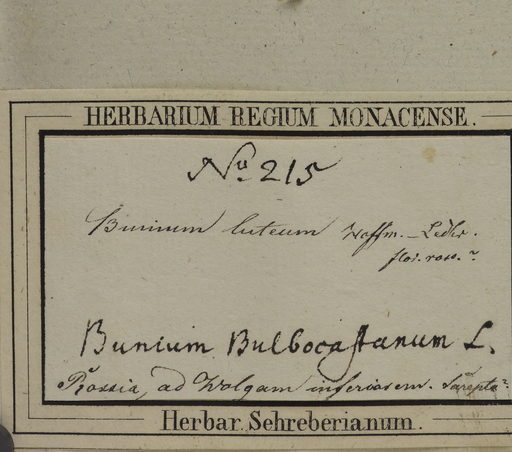 HERBARIUM REGIUM MONACENSE.
No 215
Bunium luteum Hoffm. - Ledeb.
flor. ross.
Bunium Bulbocastanum L.
Rossia, ad Wolgam inferiorem. Sarepta
Herbar. Schreberianum.